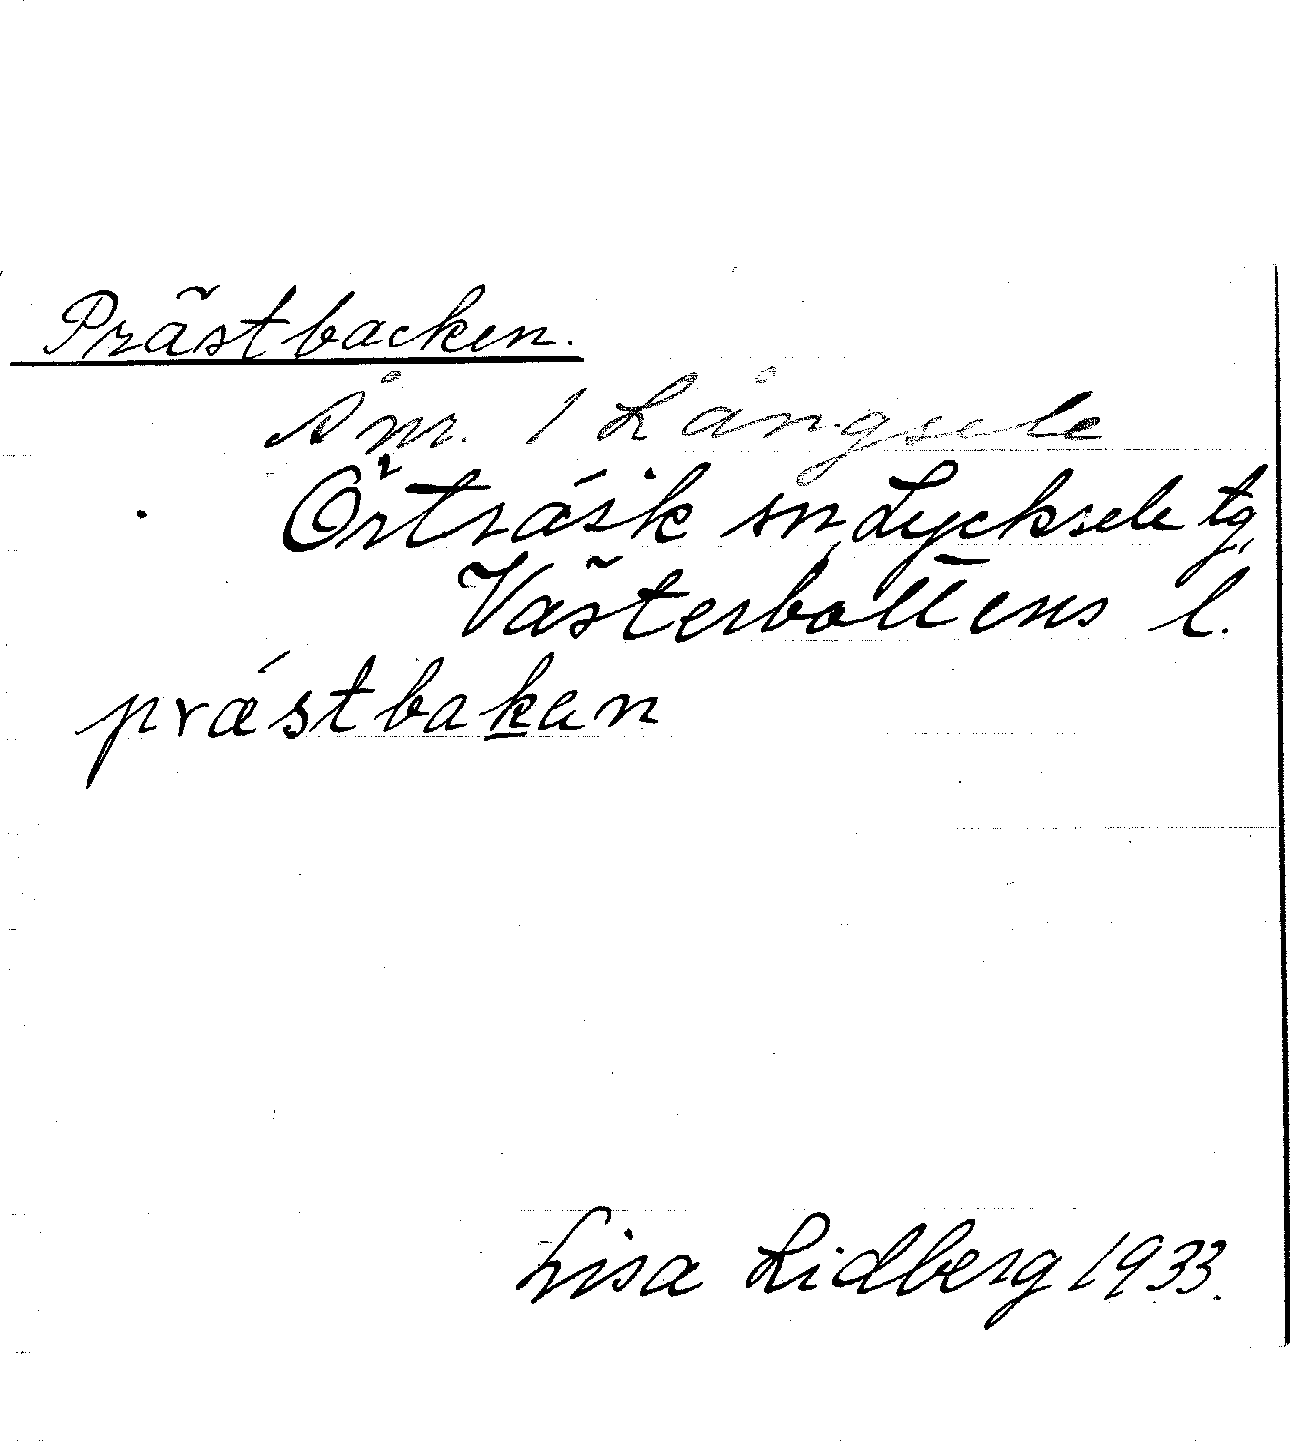 Prästbacken.
Å nr. 1 Långsele
Örträsk sn, Lycksele tg,
Västerbottens l.
præ´stbakan
Lisa Lidberg 1933.